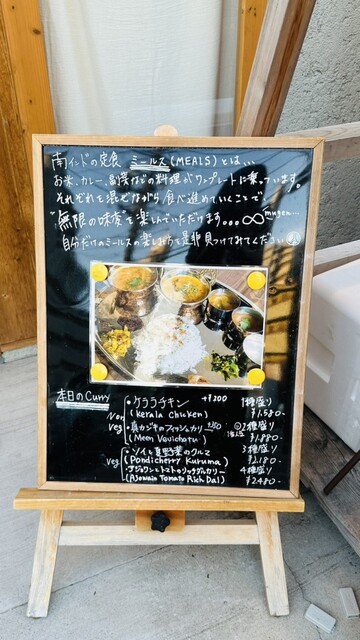 南インドの定食 ミールス(MEALS)とは、、、
お米、カレー、副菜などの料理がワンプレートに乗っています。
それぞれを混ぜながら食べ進めていくことで
"無限の味変"を楽しんでいただけます。。。∞ mugen...
自分だけのミールスの楽しみ方を是非見つけてみてください
本日のCurry
Non Veg
・ケララチキン +¥200
(Kerala Chicken)
・真カジキのフィッシュカリー
(Meen Vevichatu)
Veg
・ソイと夏野菜のクルマ
(Pondicherry Kuruma)
・アジョワントマトのリッチダルカリー
(Ajowain Tomato Rich Dal)
1種盛り
¥1.580-
2種盛り
¥1.880-
3種盛り
¥2.180-
4種盛り
¥2480-